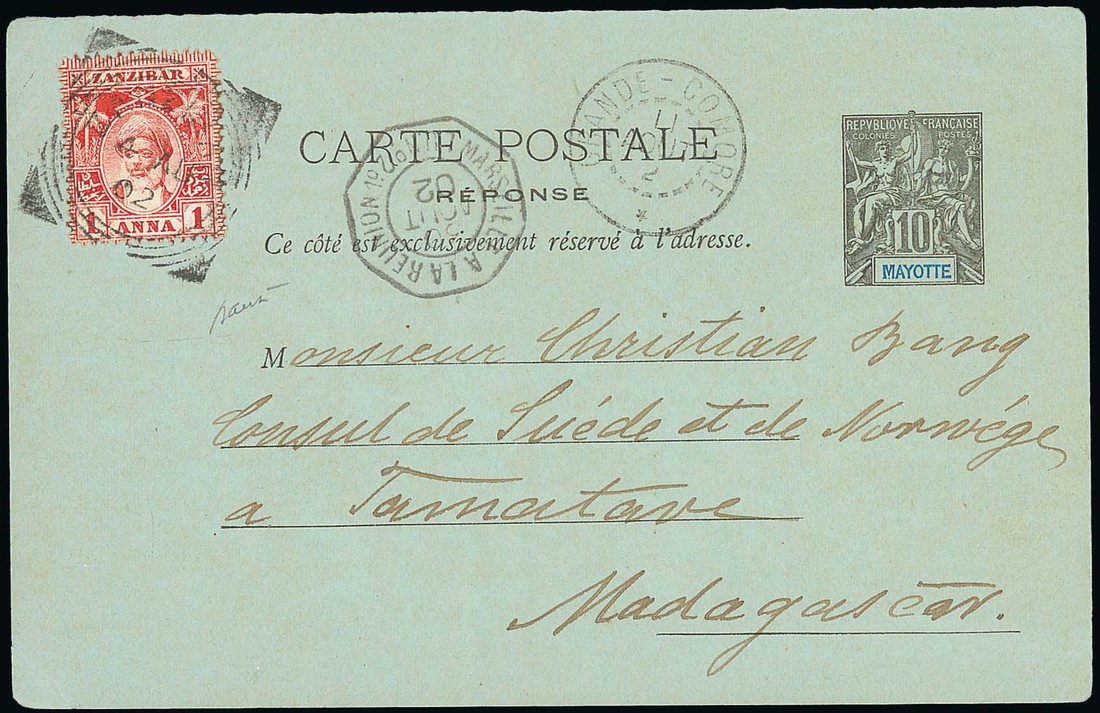 ZANZIBAR
1 ANNA 1
02
GRANDE-COMORE
REPVBLIQVE FRANÇAISE
COLONIES POSTES
10
MAYOTTE
CARTE POSTALE
RÉPONSE
MARSEILLE À LA RÉUNION 1º
02
AOUT
Ce côté est exclusivement réservé à l'adresse.
Monsieur Christian Bang
Consul de Suéde et de Norwége
a Tamatave
Madagascar.